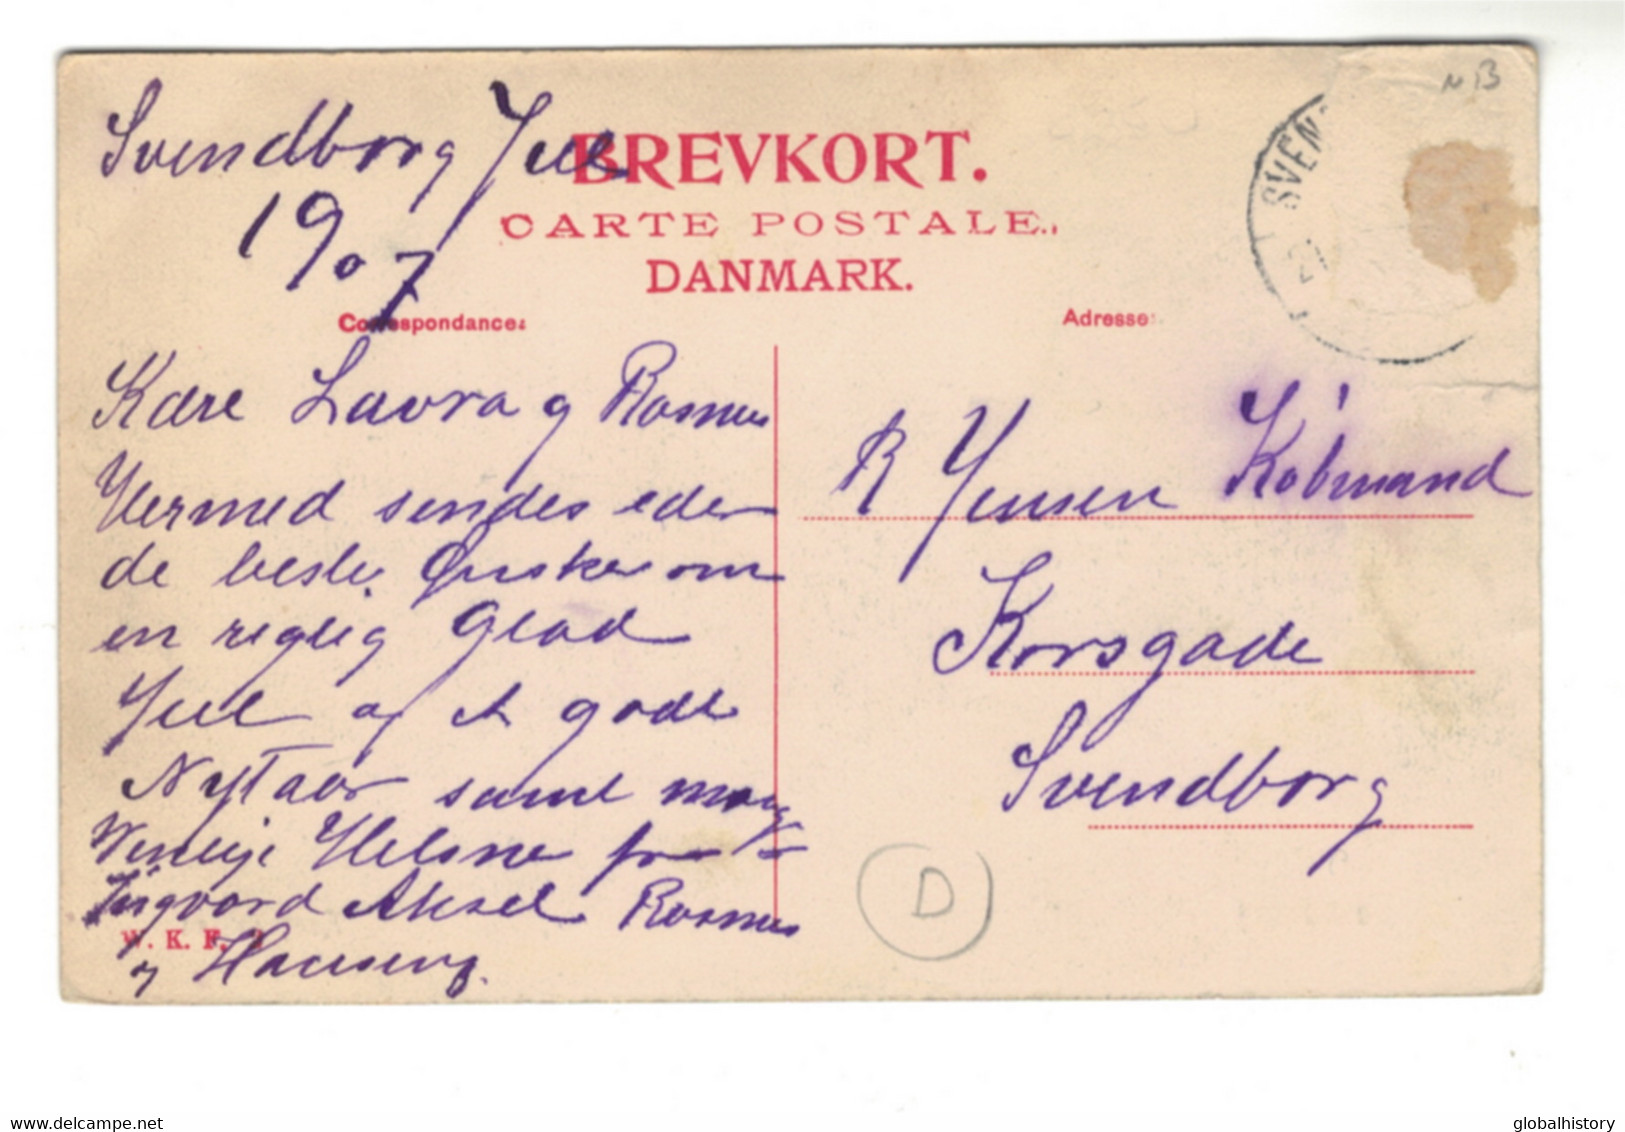 Svendborg Juel
1907
BREVKORT.
CARTE POSTALE.
DANMARK.
Correspondance:
Adresse:
SVEN
21
NB
Kære Lavra og Rasmus
Hermed sendes eder
de beste Ønsker om
en regtig Glad
Juel og et godt
Nytaar samt mang
Venlige Helsner fra
Ingvord Aksel Rasmus
og Hansens.
W. K. F.
R Jensen Købmand
Korsgade
Svendborg
D
www.delcampe.net
globalhistory